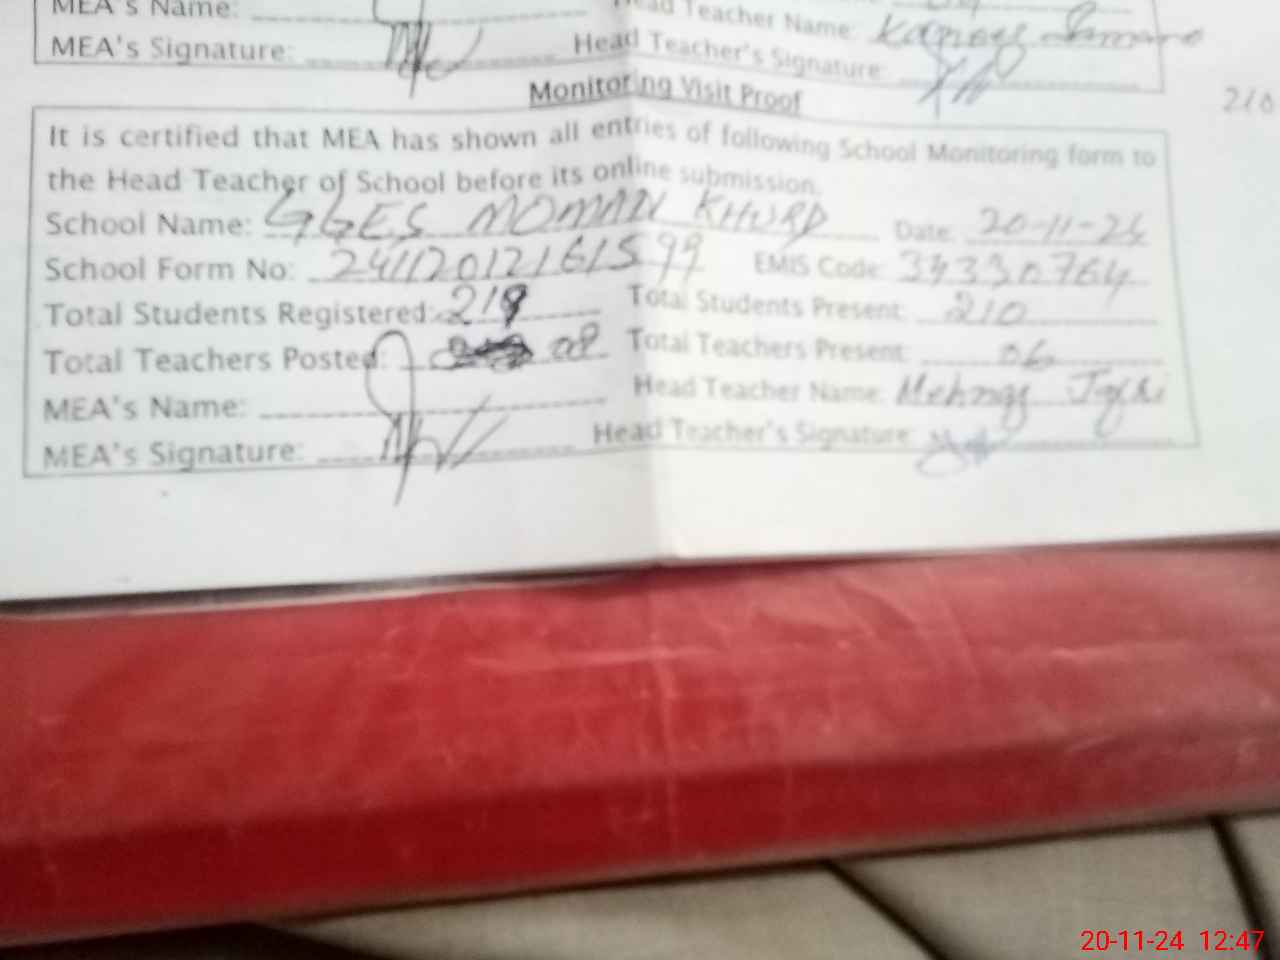 MEA's Name:
Head Teacher Name:
MEA's Signature: Head Teacher's Signature:
Monitoring Visit Proof
210
It is certified that MEA has shown all entries of following School Monitoring form to
the Head Teacher of School before its online submission.
School Name: GGES MOMAN KHURD Date: 20-11-24
School Form No: 24112012161599 EMIS Code: 34330764
Total Students Registered: 219 Total Students Present: 210
Total Teachers Posted: 08 Total Teachers Present: 06
MEA's Name: Head Teacher Name:
MEA's Signature: Head Teacher's Signature:
20-11-24 12:47